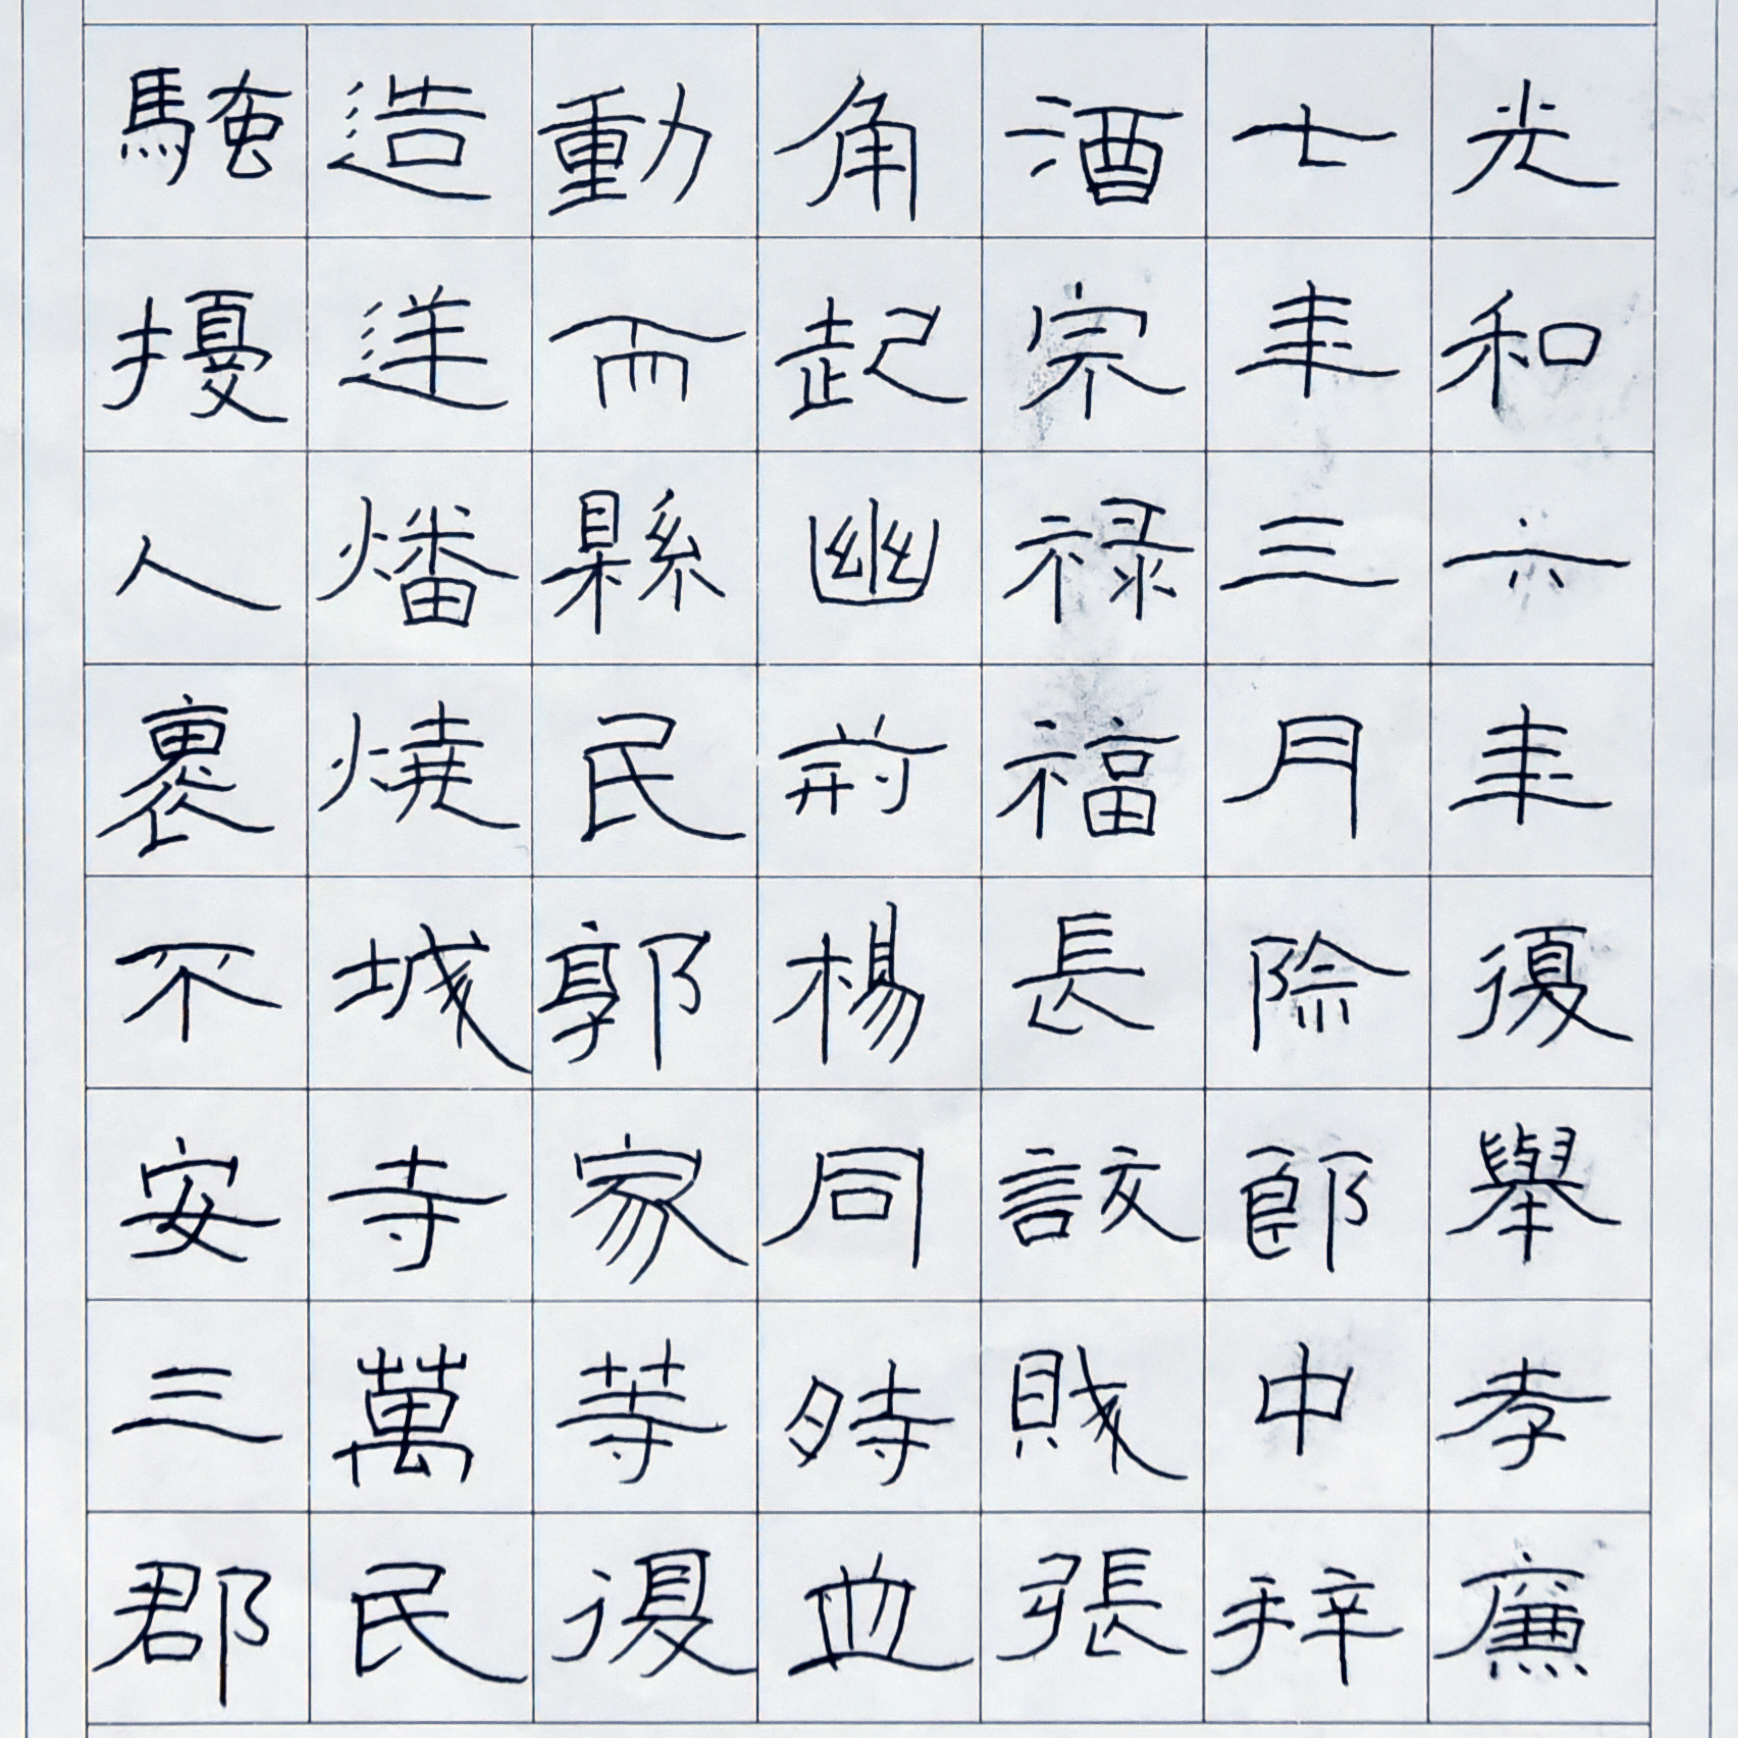 光和六年復舉孝廉
七年三月除郎中拜
酒宗祿福長訞賊張
角起幽荊楊同時並
動而縣民郭家等復
造逆燔燒城寺萬民
騷擾人裹不安三郡